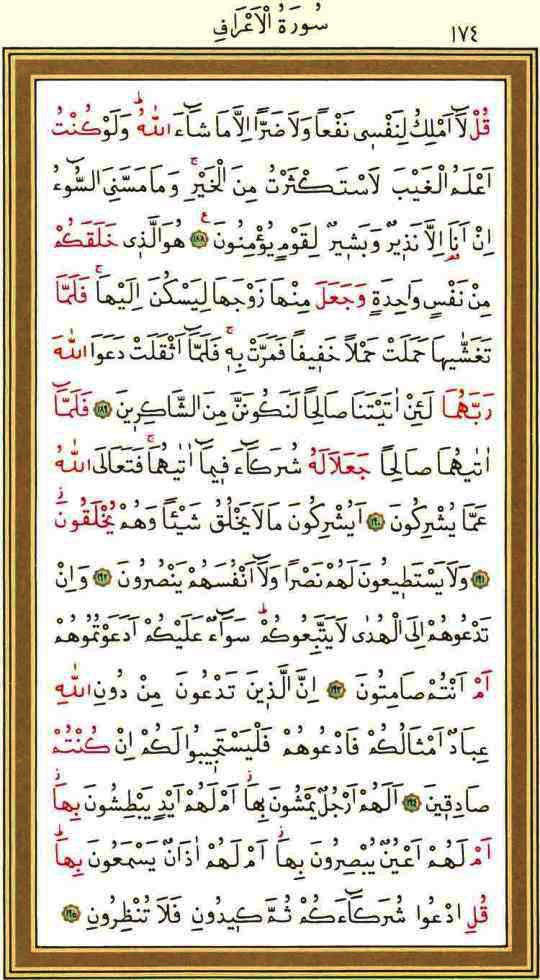 سُورَةُ الْاَعْرَافِ
١٧٤
قُلْ لَٓا اَمْلِكُ لِنَفْسٖى نَفْعاً وَلَا ضَرًّا اِلَّا مَا شَٓاءَ اللّٰهُؕ وَلَوْ كُنْتُ
اَعْلَمُ الْغَيْبَ لَاسْتَكْثَرْتُ مِنَ الْخَيْرِۚ وَمَا مَسَّنِىَ السُّٓوءُ
اِنْ اَنَا۬ اِلَّا نَذٖيرٌ وَبَشٖيرٌ لِقَوْمٍ يُؤْمِنُونَࣖ ﴿١٨٨﴾ هُوَ الَّذٖى خَلَقَكُمْ
مِنْ نَفْسٍ وَاحِدَةٍ وَجَعَلَ مِنْهَا زَوْجَهَا لِيَسْكُنَ اِلَيْهَاۚ فَلَمَّا
تَغَشّٰيهَا حَمَلَتْ حَمْلاً خَفٖيفاً فَمَرَّتْ بِهٖۚ فَلَمَّٓا اَثْقَلَتْ دَعَوَا اللّٰهَ
رَبَّهُمَا لَئِنْ اٰتَيْتَنَا صَالِحاً لَنَكُونَنَّ مِنَ الشَّاكِرٖينَ ﴿١٨٩﴾ فَلَمَّٓا
اٰتٰيهُمَا صَالِحاً جَعَلَا لَهُ شُرَكَٓاءَ فٖيمَٓا اٰتٰيهُمَاۚ فَتَعَالَى اللّٰهُ
عَمَّا يُشْرِكُونَ ﴿١٩٠﴾ اَيُشْرِكُونَ مَا لَا يَخْلُقُ شَيْـٔاً وَهُمْ يُخْلَقُونَؗ
﴿١٩١﴾ وَلَا يَسْتَطٖيعُونَ لَهُمْ نَصْرًا وَلَٓا اَنْفُسَهُمْ يَنْصُرُونَ ﴿١٩٢﴾ وَاِنْ
تَدْعُوهُمْ اِلَى الْهُدٰى لَا يَتَّبِعُوكُمْؕ سَوَٓاءٌ عَلَيْكُمْ اَدَعَوْتُمُوهُمْ
اَمْ اَنْتُمْ صَامِتُونَ ﴿١٩٣﴾ اِنَّ الَّذٖينَ تَدْعُونَ مِنْ دُونِ اللّٰهِ
عِبَادٌ اَمْثَالُكُمْ فَادْعُوهُمْ فَلْيَسْتَجٖيبُوا لَكُمْ اِنْ كُنْتُمْ
صَادِقٖينَ ﴿١٩٤﴾ اَلَهُمْ اَرْجُلٌ يَمْشُونَ بِهَاؗ اَمْ لَهُمْ اَيْدٍ يَبْطِشُونَ بِهَاؗ
اَمْ لَهُمْ اَعْيُنٌ يُبْصِرُونَ بِهَاؗ اَمْ لَهُمْ اٰذَانٌ يَسْمَعُونَ بِهَاؕ
قُلِ ادْعُوا شُرَكَٓاءَكُمْ ثُمَّ كٖيدُونِ فَلَا تُنْظِرُونِ ﴿١٩٥﴾